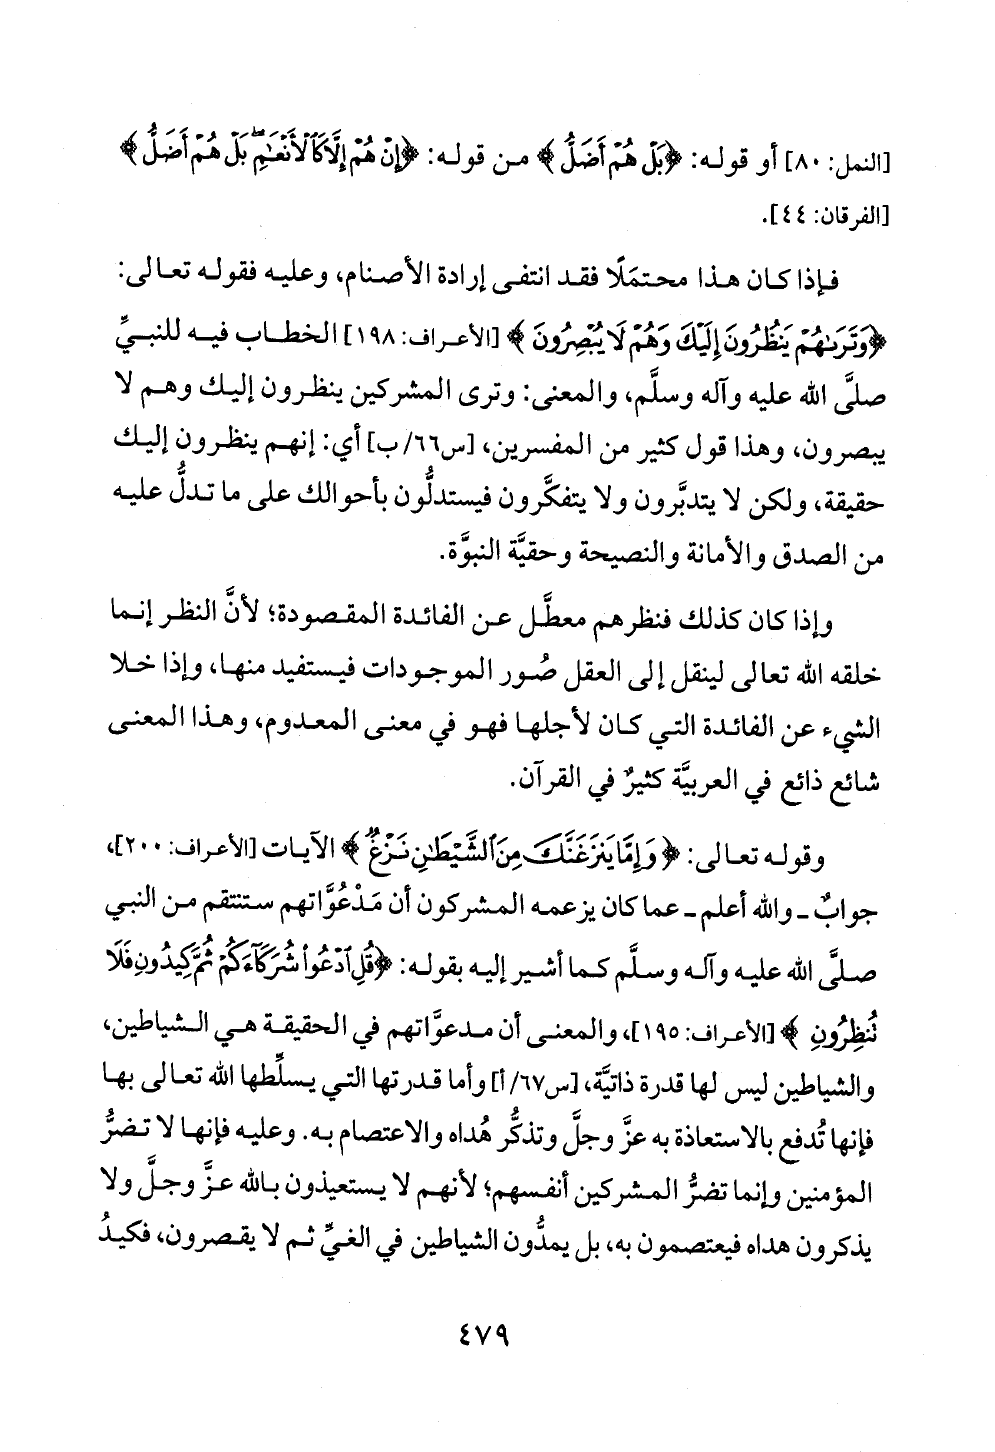 [النمل: ٨٠] أو قوله: ﴿بَلْ هُمْ أَضَلُّ﴾ من قوله: ﴿إِنْ هُمْ إِلَّا كَٱلْأَنْعَٰمِ ۖ بَلْ هُمْ أَضَلُّ﴾
[الفرقان: ٤٤].
فإذا كان هذا محتمَلًا فقد انتفى إرادة الأصنام، وعليه فقوله تعالى:
﴿وَتَرَىٰهُمْ يَنظُرُونَ إِلَيْكَ وَهُمْ لَا يُبْصِرُونَ﴾ [الأعراف: ١٩٨] الخطاب فيه للنبيِّ
صلَّى الله عليه وآله وسلَّم، والمعنى: وترى المشركين ينظرون إليك وهم لا
يبصرون، وهذا قول كثير من المفسرين، [س٦٦/ب] أي: إنهم ينظرون إليك
حقيقة، ولكن لا يتدبَّرون ولا يتفكَّرون فيستدلُّون بأحوالك على ما تدلُّ عليه
من الصدق والأمانة والنصيحة وحقيَّة النبوَّة.
وإذا كان كذلك فنظرهم معطَّل عن الفائدة المقصودة؛ لأنَّ النظر إنما
خلقه الله تعالى لينقل إلى العقل صُور الموجودات فيستفيد منها، وإذا خلا
الشيء عن الفائدة التي كان لأجلها فهو في معنى المعدوم، وهذا المعنى
شائع ذائع في العربيَّة كثيرٌ في القرآن.
وقوله تعالى: ﴿وَإِمَّا يَنزَغَنَّكَ مِنَ ٱلشَّيْطَٰنِ نَزْغٌ﴾ الآيات [الأعراف: ٢٠٠]،
جوابٌ ـ والله أعلم ـ عما كان يزعمه المشركون أن مَدْعُوَّاتهم ستنتقم من النبي
صلَّى الله عليه وآله وسلَّم كما أشير إليه بقوله: ﴿قُلِ ٱدْعُوا۟ شُرَكَآءَكُمْ ثُمَّ كِيدُونِ فَلَا
تُنظِرُونِ﴾ [الأعراف: ١٩٥]، والمعنى أن مدعوَّاتهم في الحقيقة هي الشياطين،
والشياطين ليس لها قدرة ذاتيَّة، [س٦٧/أ] وأما قدرتها التي يسلِّطها الله تعالى بها
فإنها تُدفع بالاستعاذة به عزَّ وجلَّ وتذكُّر هُداه والاعتصام به. وعليه فإنها لا تضرُّ
المؤمنين وإنما تضرُّ المشركين أنفسهم؛ لأنهم لا يستعيذون بالله عزَّ وجلَّ ولا
يذكرون هداه فيعتصمون به، بل يمدُّون الشياطين في الغيِّ ثم لا يقصرون، فكيدُ
٤٧٩